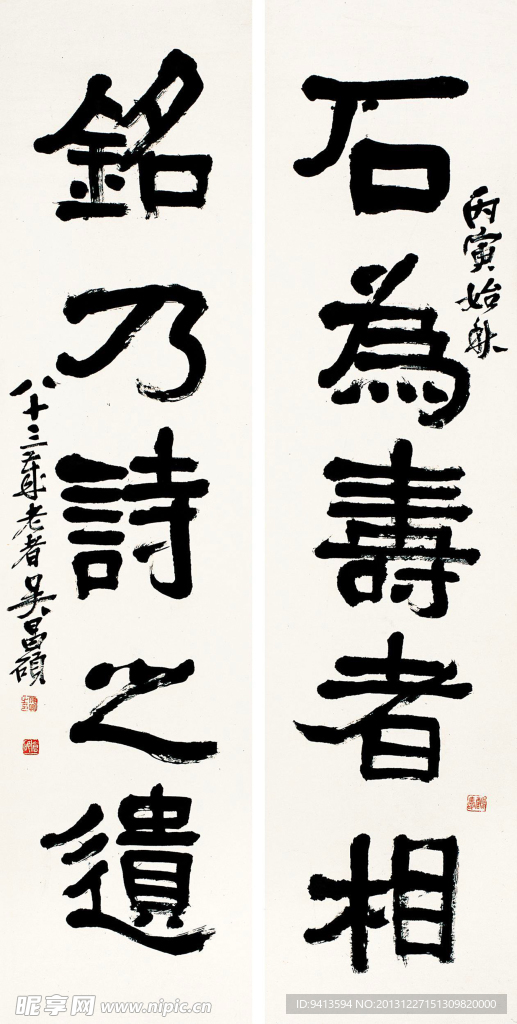 石為壽者相
丙寅始秋
銘乃詩之遺
八十三歲老者吳昌碩
昵享网 www.nipic.cn
ID:9413594 NO:20131227151309820000